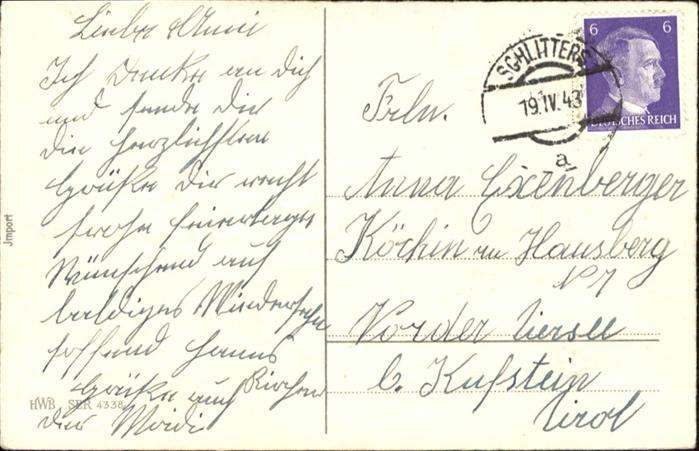 Liebe Anni
Ich Denke an Dich
und sende Dir
die herzlichsten
Grüße Dir recht
frohe Feiertage
Wünschend auf
baldiges Wiedersehn
hoffend Hanns
Grüße auch
der Moidi
Jmport
HWB SER 4338
SCHLITTERS
19.IV.43
a
6 6
DEUTSCHES REICH
Frln.
Anna Exenberger
Köchin zu Hausberg
N 7
Vorder tiersee
b. Kufstein
Tirol